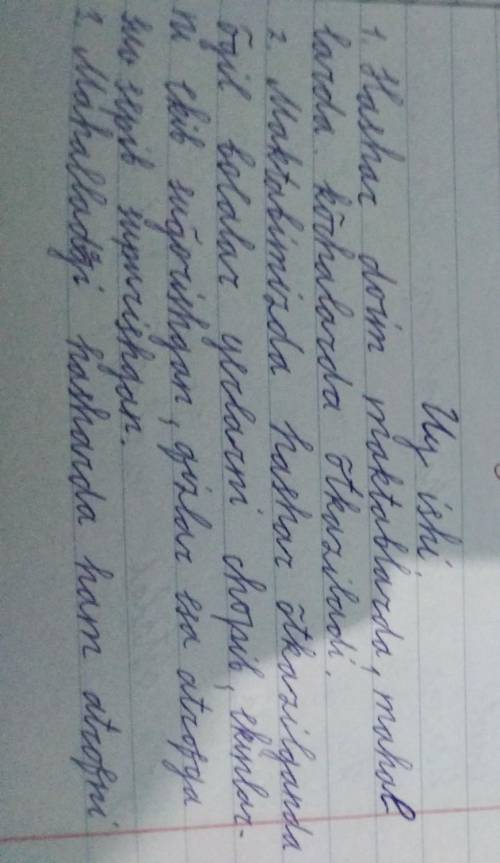 Uy ishi.
1. Hashar doim maktablarda, mahal
larda. kõchalarda õtkaziladi.
2. Maktabimizda hashar õtkazilganda
õgil bolalar yerlarni chopib, ekinlar-
ni ekib suğorishgan, qizlar esa atrofga
suv sepib supurishgan.
2. Mahalladagi hasharda ham atrofni